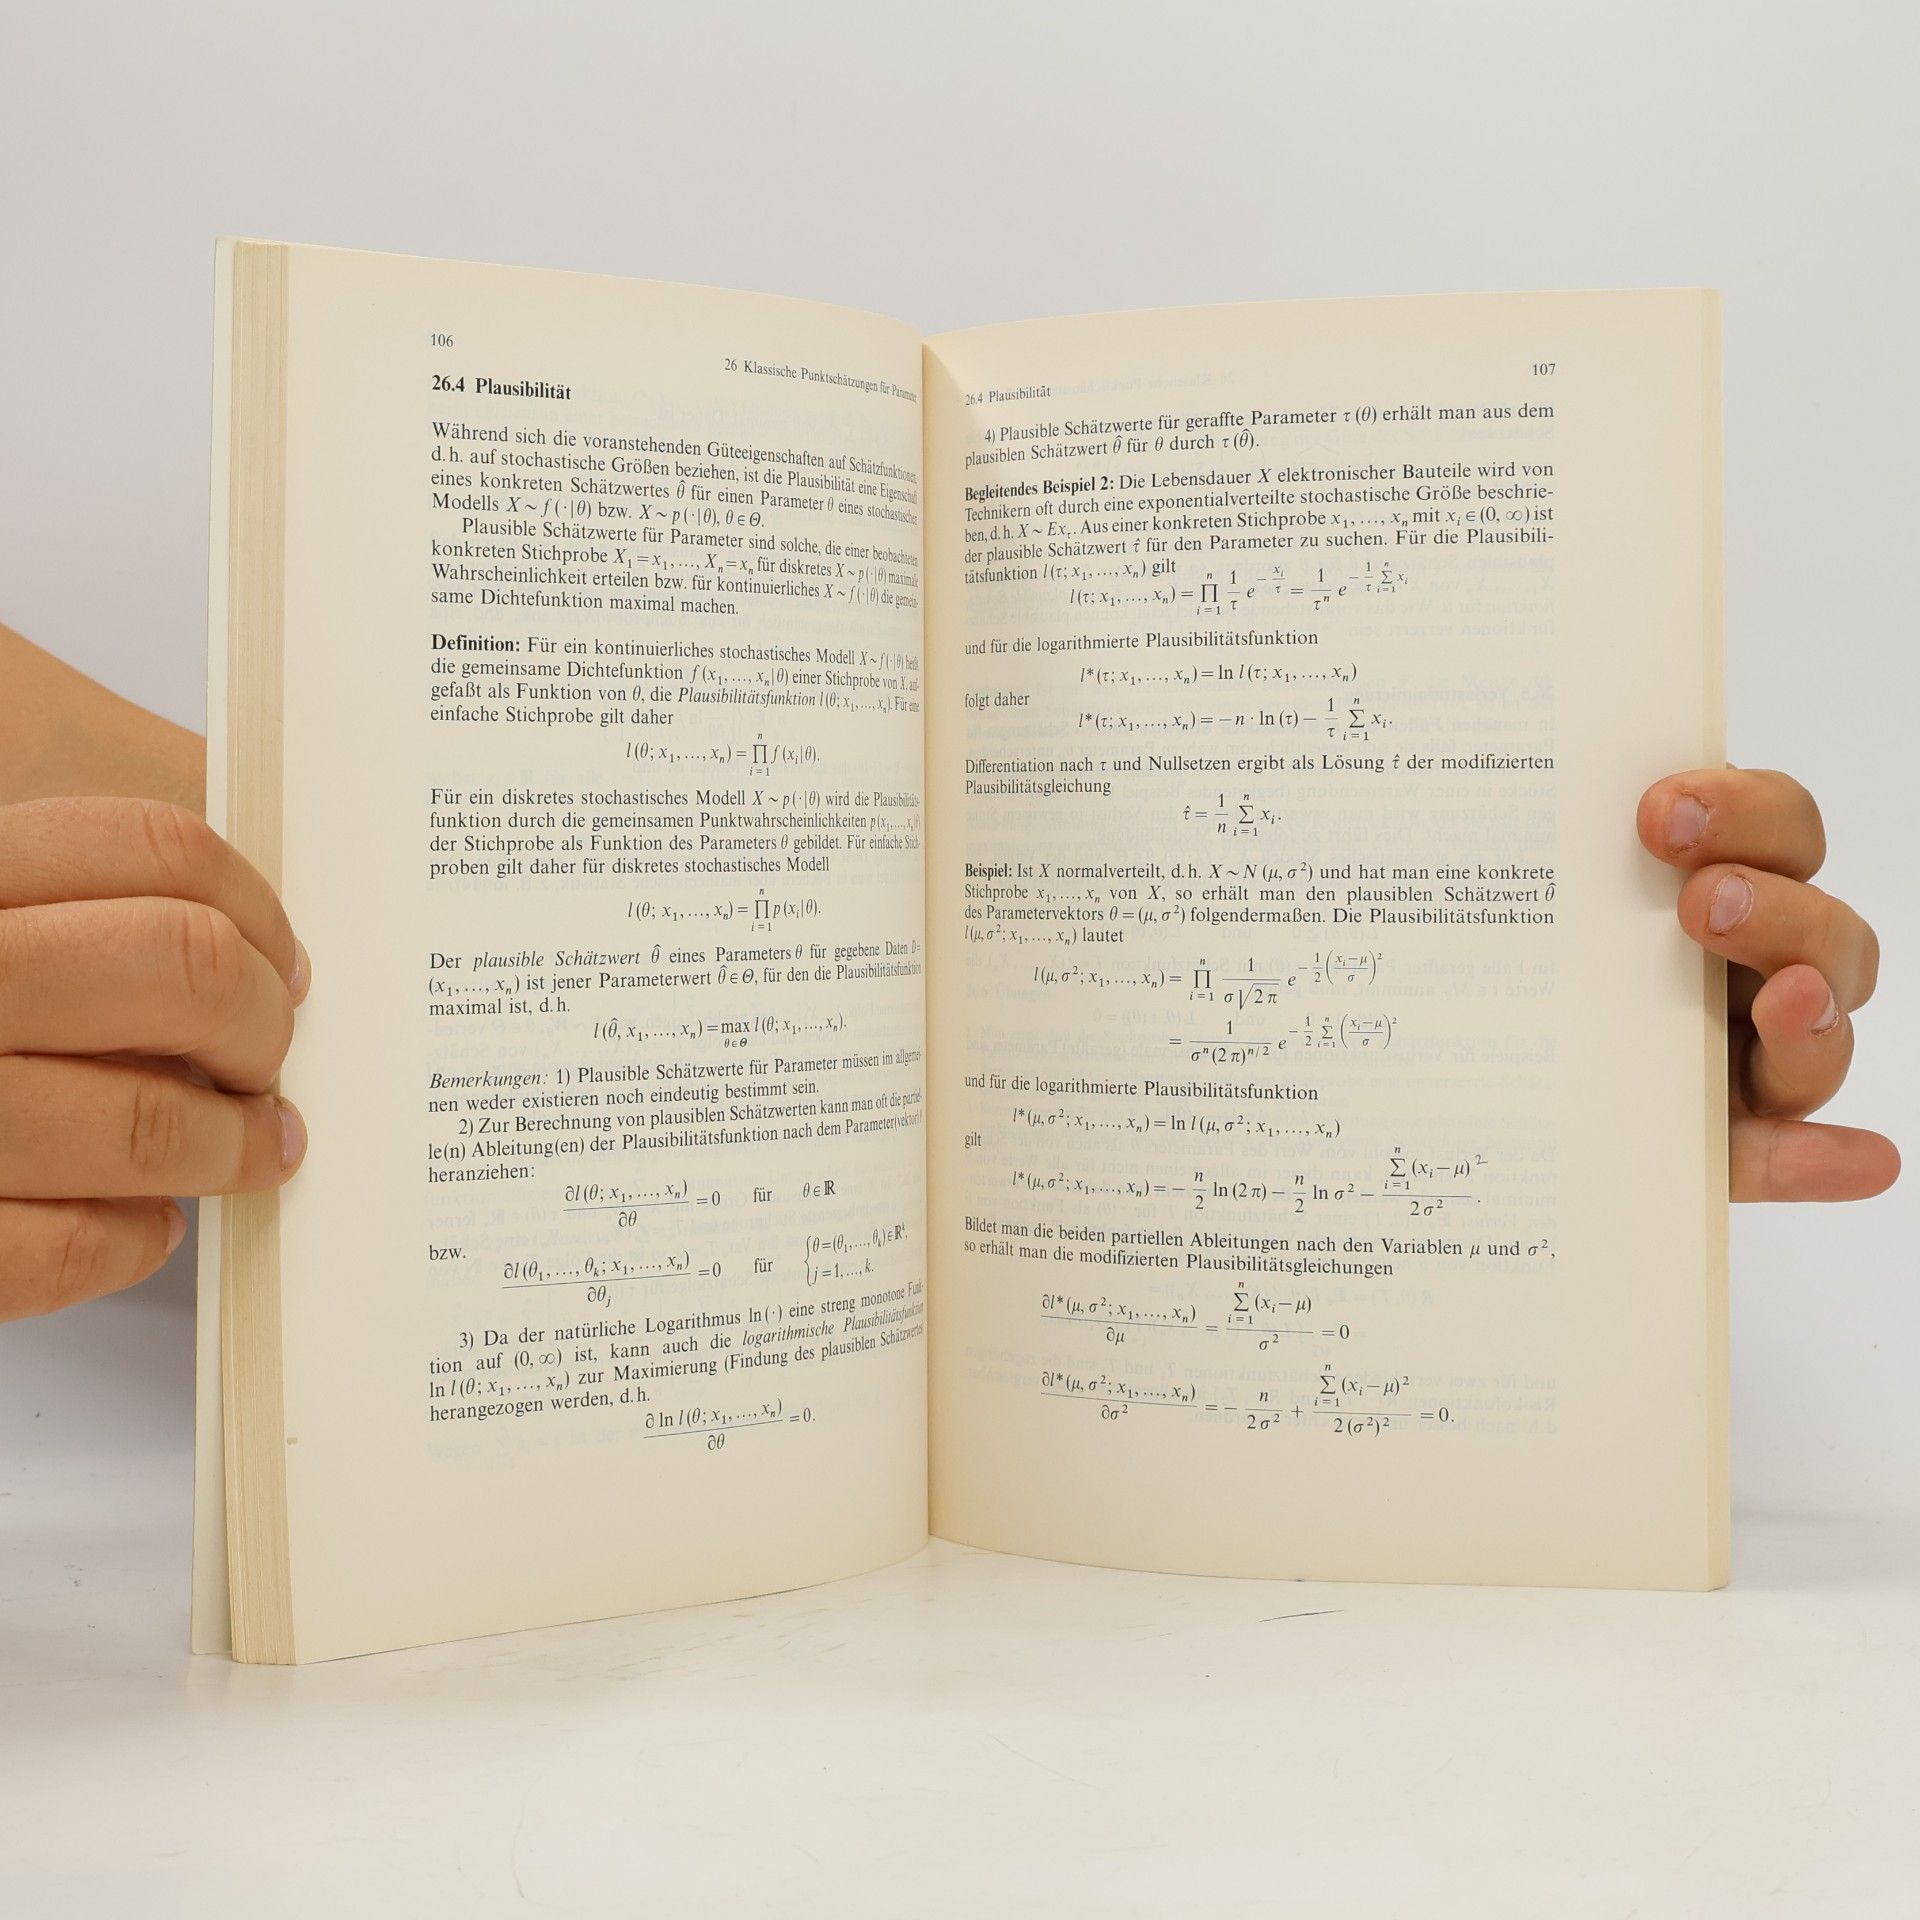 106
26 Klassische Punktschätzungen für Parameter
26.4 Plausibilität
Während sich die voranstehenden Güteeigenschaften auf Schätzfunktionen,
d.h. auf stochastische Größen beziehen, ist die Plausibilität eine Eigenschaft
eines konkreten Schätzwertes θ̂ für einen Parameter θ eines stochastischen
Modells X ~ f(·|θ) bzw. X ~ p(·|θ), θ ∈ Θ.
Plausible Schätzwerte für Parameter sind solche, die einer beobachteten
konkreten Stichprobe X₁ = x₁, ..., Xₙ = xₙ für diskretes X ~ p(·|θ) maximale
Wahrscheinlichkeit erteilen bzw. für kontinuierliches X ~ f(·|θ) die gemein-
same Dichtefunktion maximal machen.
Definition: Für ein kontinuierliches stochastisches Modell X ~ f(·|θ) heißt
die gemeinsame Dichtefunktion f(x₁, ..., xₙ|θ) einer Stichprobe von X, auf-
gefaßt als Funktion von θ, die Plausibilitätsfunktion l(θ; x₁, ..., xₙ). Für eine
einfache Stichprobe gilt daher
l(θ; x₁, ..., xₙ) = ∏ⁿᵢ₌₁ f(xᵢ|θ).
Für ein diskretes stochastisches Modell X ~ p(·|θ) wird die Plausibilitäts-
funktion durch die gemeinsamen Punktwahrscheinlichkeiten p(x₁, ..., xₙ|θ)
der Stichprobe als Funktion des Parameters θ gebildet. Für einfache Stich-
proben gilt daher für diskretes stochastisches Modell
l(θ; x₁, ..., xₙ) = ∏ⁿᵢ₌₁ p(xᵢ|θ).
Der plausible Schätzwert θ̂ eines Parameters θ für gegebene Daten D =
(x₁, ..., xₙ) ist jener Parameterwert θ̂ ∈ Θ, für den die Plausibilitätsfunktion
maximal ist, d.h.
l(θ̂, x₁, ..., xₙ) = max_{θ∈Θ} l(θ; x₁, ..., xₙ).
Bemerkungen: 1) Plausible Schätzwerte für Parameter müssen im allgemei-
nen weder existieren noch eindeutig bestimmt sein.
2) Zur Berechnung von plausiblen Schätzwerten kann man oft die partiel-
le(n) Ableitung(en) der Plausibilitätsfunktion nach dem Parameter(vektor) θ
heranziehen:
∂l(θ; x₁, ..., xₙ)/∂θ = 0 für θ ∈ ℝ
bzw.
∂l(θ₁, ..., θₖ; x₁, ..., xₙ)/∂θⱼ = 0 für {θ = (θ₁, ..., θₖ) ∈ ℝᵏ, j = 1, ..., k.
3) Da der natürliche Logarithmus ln(·) eine streng monotone Funk-
tion auf (0, ∞) ist, kann auch die logarithmische Plausibilitätsfunktion
ln l(θ; x₁, ..., xₙ) zur Maximierung (Findung des plausiblen Schätzwertes)
herangezogen werden, d.h.
∂ ln l(θ; x₁, ..., xₙ)/∂θ = 0.
26.4 Plausibilität
107
4) Plausible Schätzwerte für geraffte Parameter τ(θ) erhält man aus dem
plausiblen Schätzwert θ̂ für θ durch τ(θ̂).
Begleitendes Beispiel 2: Die Lebensdauer X elektronischer Bauteile wird von
Technikern oft durch eine exponentialverteilte stochastische Größe beschrie-
ben, d.h. X ~ Ex_τ. Aus einer konkreten Stichprobe x₁, ..., xₙ mit xᵢ ∈ (0, ∞) ist
der plausible Schätzwert τ̂ für den Parameter zu suchen. Für die Plausibili-
tätsfunktion l(τ; x₁, ..., xₙ) gilt
l(τ; x₁, ..., xₙ) = ∏ⁿᵢ₌₁ (1/τ) e^(−xᵢ/τ) = (1/τⁿ) e^(−(1/τ) Σⁿᵢ₌₁ xᵢ)
und für die logarithmierte Plausibilitätsfunktion
l*(τ; x₁, ..., xₙ) = ln l(τ; x₁, ..., xₙ)
folgt daher
l*(τ; x₁, ..., xₙ) = −n · ln(τ) − (1/τ) Σⁿᵢ₌₁ xᵢ.
Differentiation nach τ und Nullsetzen ergibt als Lösung τ̂ der modifizierten
Plausibilitätsgleichung
τ̂ = (1/n) Σⁿᵢ₌₁ xᵢ.
Beispiel: Ist X normalverteilt, d.h. X ~ N(μ, σ²) und hat man eine konkrete
Stichprobe x₁, ..., xₙ von X, so erhält man den plausiblen Schätzwert θ̂
des Parametervektors θ = (μ, σ²) folgendermaßen. Die Plausibilitätsfunktion
l(μ, σ²; x₁, ..., xₙ) lautet
l(μ, σ²; x₁, ..., xₙ) = ∏ⁿᵢ₌₁ 1/(σ√(2π)) e^(−(1/2)((xᵢ−μ)/σ)²)
= 1/(σⁿ(2π)^(n/2)) e^(−(1/2) Σⁿᵢ₌₁ ((xᵢ−μ)/σ)²)
und für die logarithmierte Plausibilitätsfunktion
l*(μ, σ²; x₁, ..., xₙ) = ln l(μ, σ²; x₁, ..., xₙ)
gilt
l*(μ, σ²; x₁, ..., xₙ) = −(n/2) ln(2π) − (n/2) ln σ² − Σⁿᵢ₌₁ (xᵢ−μ)²/(2σ²).
Bildet man die beiden partiellen Ableitungen nach den Variablen μ und σ²,
so erhält man die modifizierten Plausibilitätsgleichungen
∂l*(μ, σ²; x₁, ..., xₙ)/∂μ = Σⁿᵢ₌₁ (xᵢ−μ)/σ² = 0
∂l*(μ, σ²; x₁, ..., xₙ)/∂σ² = −n/(2σ²) + Σⁿᵢ₌₁ (xᵢ−μ)²/(2(σ²)²) = 0.